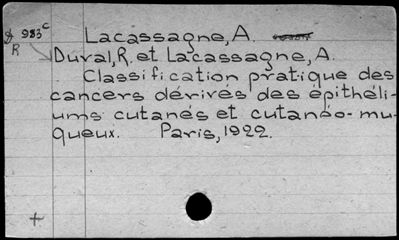 983 c Lacassagne, A.
R
Duval, R. et Lacassagne, A.
Classification pratique des
cancers dérivés des épithéli-
ums cutanés et cutanéo-mu-
queux. Paris, 1922.
+